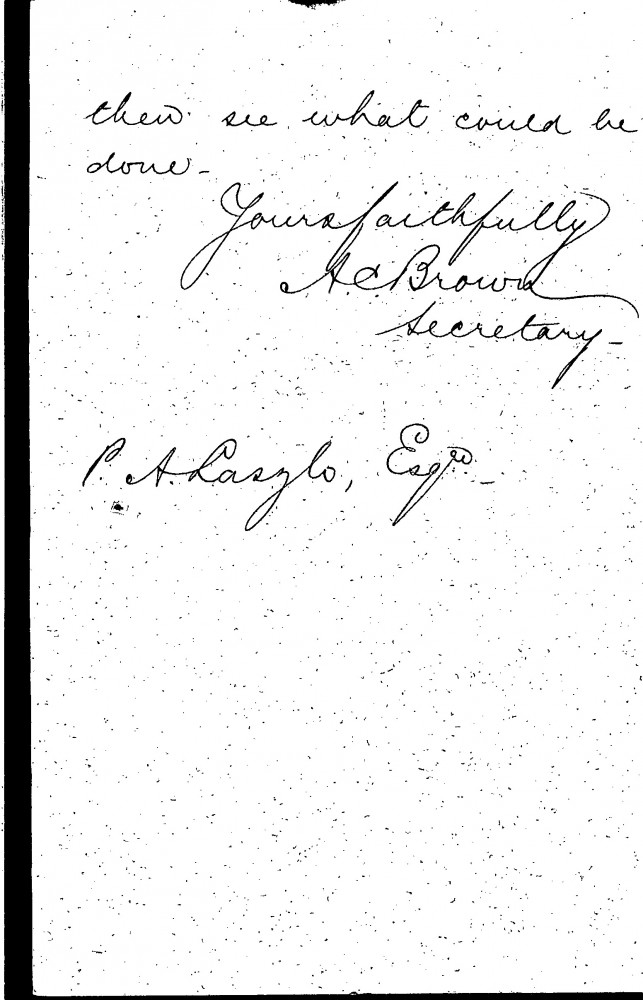 then see what could be
done -
Yours faithfully
A C Brown
Secretary -
P. A. Laszlo, Esqre -